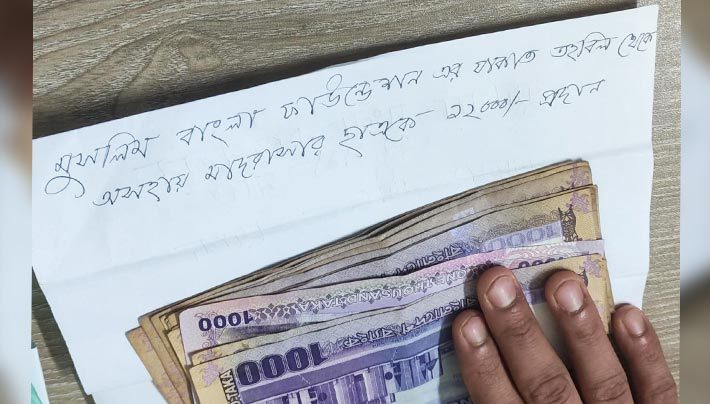 মুসলিম বাংলা ফাউন্ডেশন এর যাকাত তহবিল থেকে
অসহায় মাদরাসার ছাত্রকে- ১২০০০/- প্রদান
1000
1000
1000
TAKA